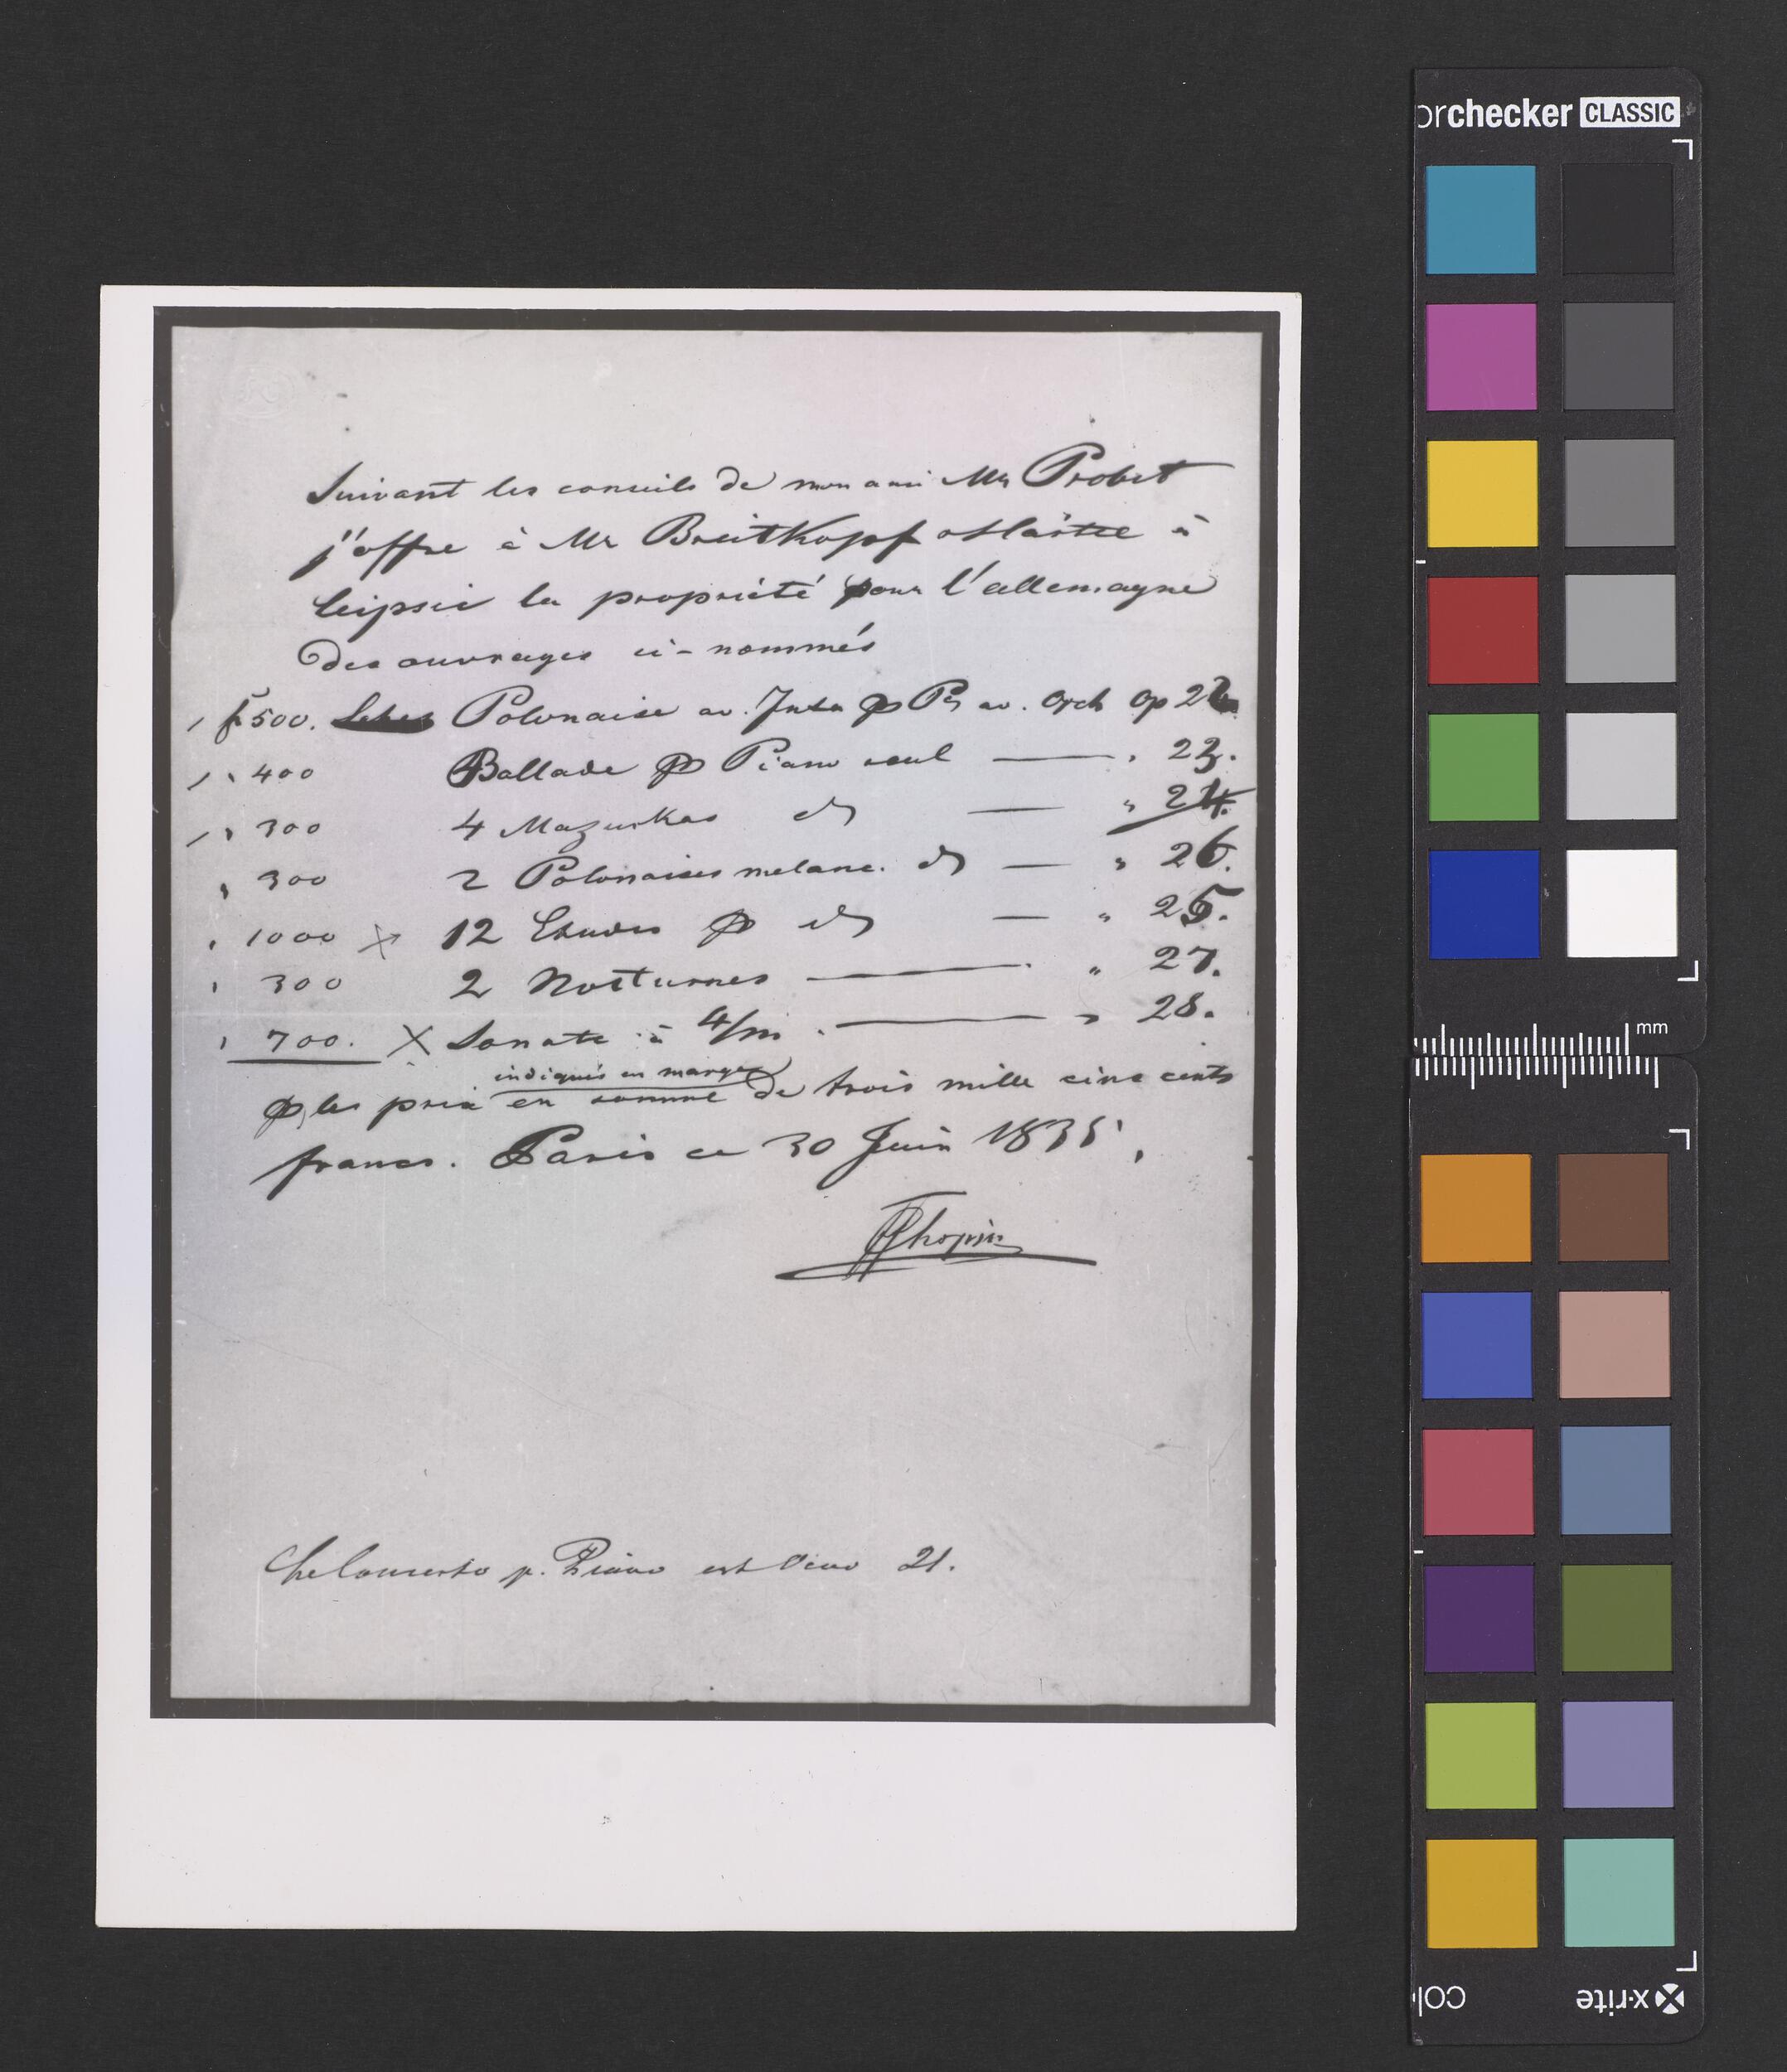 Suivant les conseils de mon ami Mr Probst
j'offre à Mr Breitkopf et Härtel à
Leipsic la propriété pour l'allemagne
des ouvrages ci-nommés
f 500. Polonaise av. Intr p Pn av. Orch Op 22
" 400 Ballade p Piano seul — " 23.
" 300 4 Mazurkas do — " 24.
" 300 2 Polonaises melanc. do — " 26.
" 1000 x 12 Etudes p do — " 25.
" 300 2 Nocturnes — " 27.
" 700. X Sonate à 4/m. — " 28.
indiqués en marge
p. les prix en somme de trois mille cinc cents
francs. Paris ce 30 Juin 1835.
FChopin
Concerto p. Piano est Oeuv 21.
orchecker CLASSIC
mm
x-rite
col